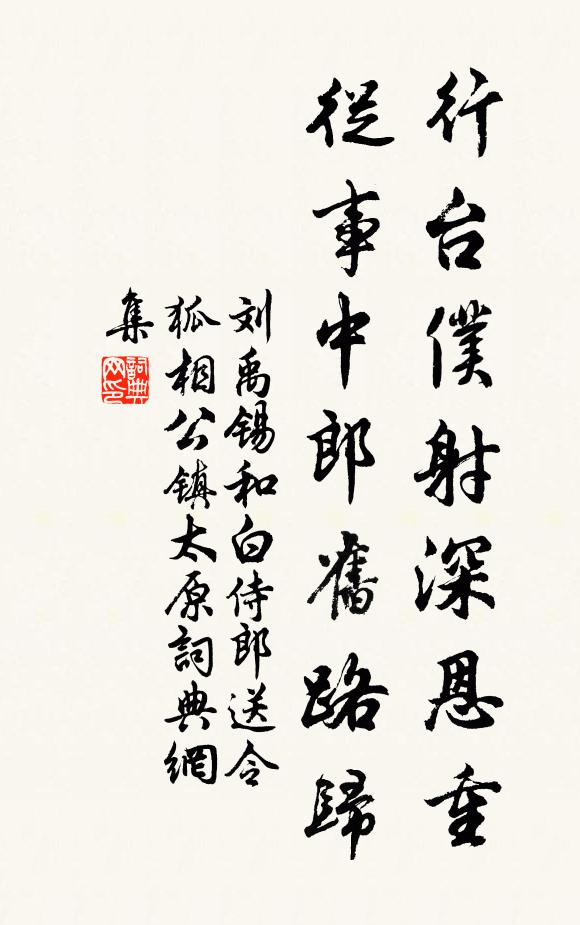 行台僕射深恩重
從事中郎舊路歸
刘禹锡和白侍郎送令
狐相公镇太原詞典網
集
詞典网印